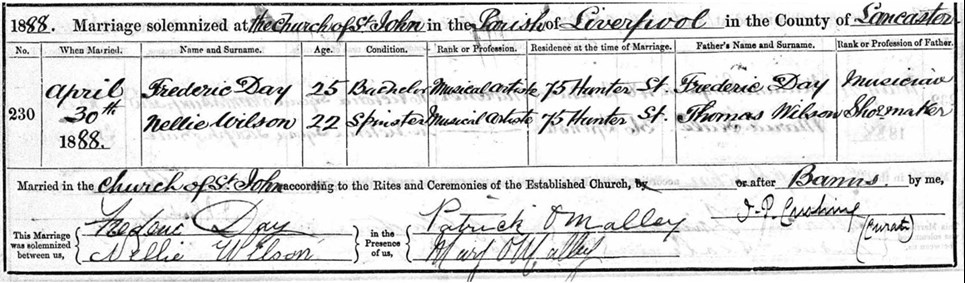 1888. Marriage solemnized at the Church of St John in the Parish of Liverpool in the County of Lancaster
No. When Married. Name and Surname. Age. Condition. Rank or Profession. Residence at the time of Marriage. Father's Name and Surname. Rank or Profession of Father.
April Frederic Day 25 Bachelor Musical Artiste 75 Hunter St. Frederic Day Musician
230 30th Nellie Wilson 22 Spinster Musical Artiste 75 Hunter St. Thomas Wilson Shoemaker
1888.
Married in the Church of St John according to the Rites and Ceremonies of the Established Church, by or after Banns by me,
This Marriage was solemnized between us, Frederic Day in the Presence of us, Patrick O'Malley J. P. (Curate)
Nellie Wilson Mary O'Malley